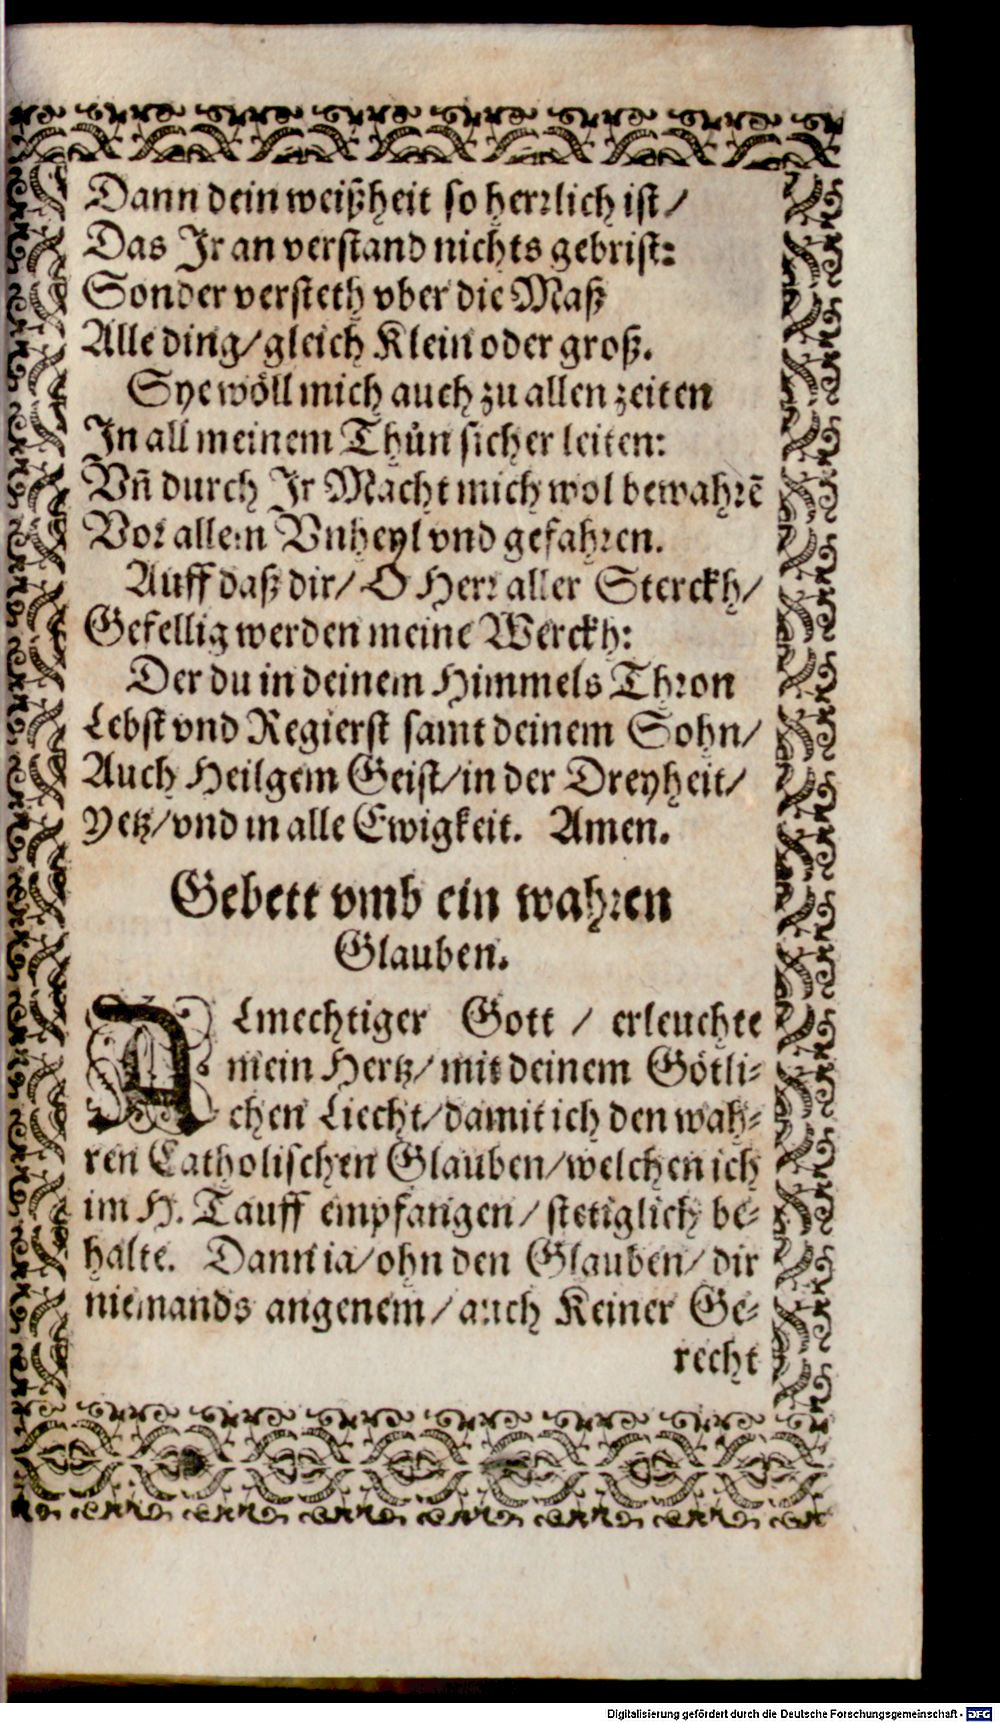 Dann dein weißheit so herrlich ist/
Das Jr an verstand nichts gebrist:
Sonder versteth vber die Maß
Alle ding/ gleich Klein oder groß.
Sye wöll mich auch zu allen zeiten
In all meinem Thůn sicher leiten:
Vñ durch Jr Macht mich wol bewahrẽ
Vor allem Vnheyl vnd gefahren.
Auff daß dir/ O Herr aller Sterckh/
Gefellig werden meine Werckh:
Der du in deinem Himmels Thron
Lebst vnd Regierst samt deinem Sohn/
Auch Heilgem Geist/ in der Dreyheit/
Yetz/ vnd in alle Ewigkeit. Amen.
Gebett vmb ein wahren
Glauben.
ALmechtiger Gott / erleuchte
mein Hertz/ mit deinem Götli-
chen Liecht/ damit ich den wah-
ren Catholischen Glauben/ welchen ich
im H. Tauff empfangen/ stetiglich be-
halte. Dann ia/ ohn den Glauben/ dir
niemands angenem/ auch Keiner Ge-
recht
Digitalisierung gefördert durch die Deutsche Forschungsgemeinschaft - DFG